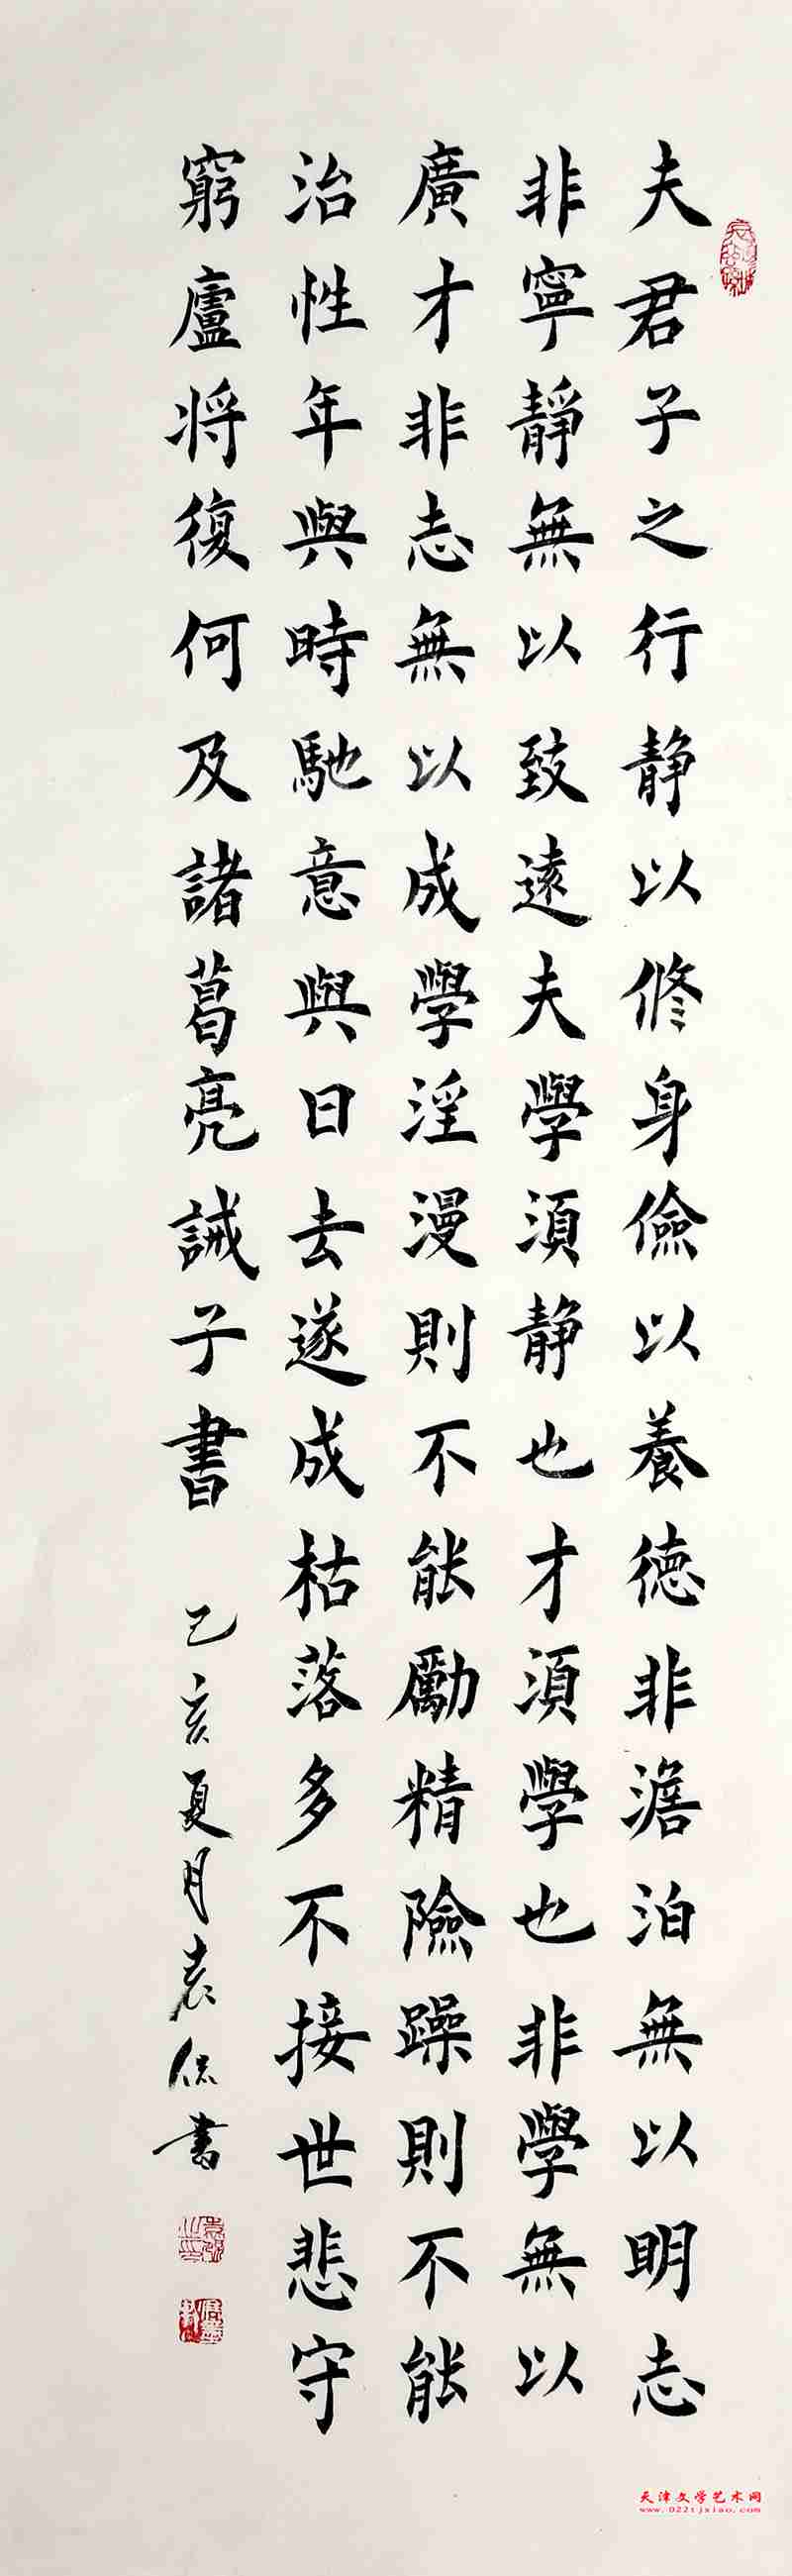 夫君子之行静以修身儉以養德非澹泊無以明志
非寧靜無以致遠夫學須静也才須學也非學無以
廣才非志無以成學淫漫則不能勵精險躁則不能
治性年與時馳意與日去遂成枯落多不接世悲守
窮廬将復何及諸葛亮誡子書
己亥夏月袁保書
天津文学艺术网
www.022tjxiao.com